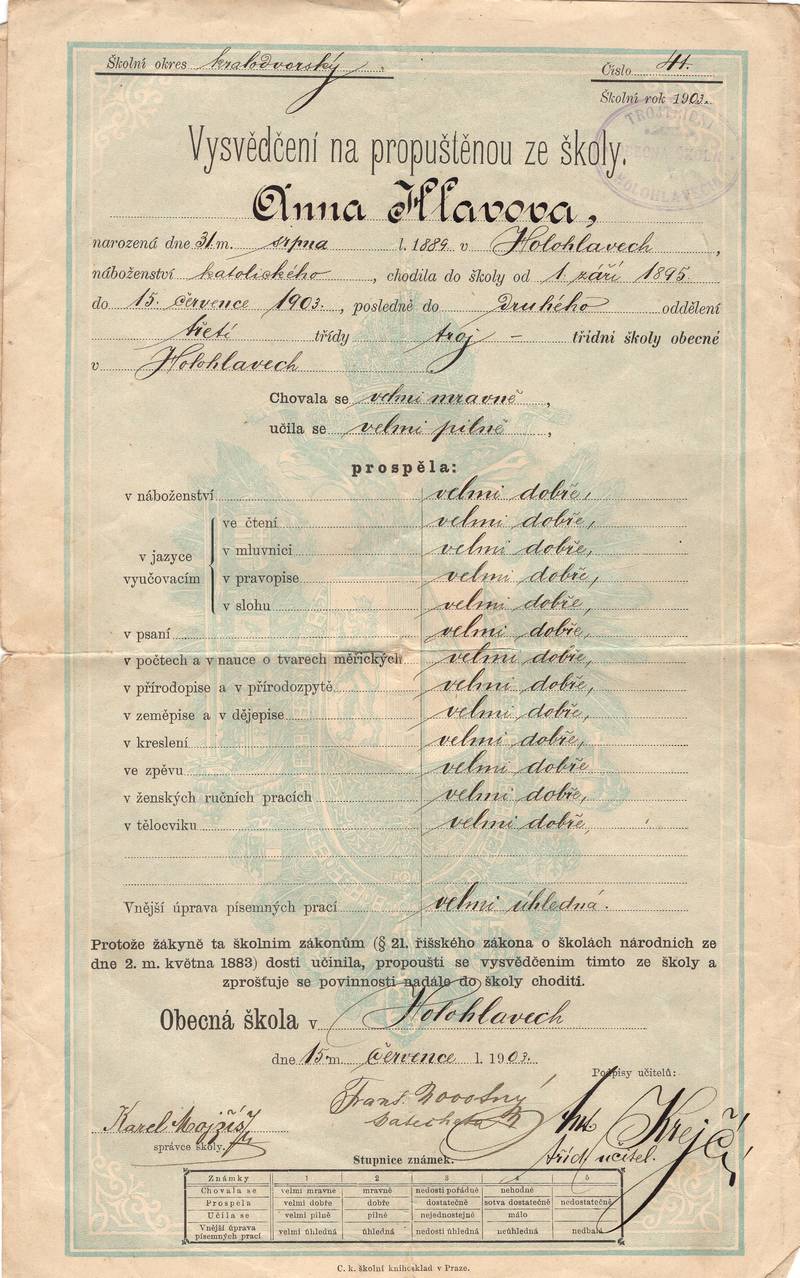 Školní okres kralodvorský
Číslo 41.
Školní rok 1903.
TROJTŘÍDNÍ
OBECNÁ ŠKOLA
HOLOHLAVECH
Vysvědčení na propuštěnou ze školy.
Anna Hlavova,
narozená dne 31. m. srpna l. 1889 v Holohlavech,
náboženství katolického, chodila do školy od 1. září 1895
do 15. července 1903., posledně do Druhého oddělení
třetí třídy troj – třídní školy obecné
v Holohlavech
Chovala se velmi mravně,
učila se velmi pilně,
prospěla:
v náboženství velmi dobře,
v jazyce vyučovacím
ve čtení velmi dobře,
v mluvnici velmi dobře,
v pravopise velmi dobře,
v slohu velmi dobře,
v psaní velmi dobře,
v počtech a v nauce o tvarech měřických velmi dobře,
v přírodopise a v přírodozpytě velmi dobře,
v zeměpise a v dějepise velmi dobře,
v kreslení velmi dobře,
ve zpěvu velmi dobře
v ženských ručních pracích velmi dobře,
v tělocviku velmi dobře,
Vnější úprava písemných prací velmi úhledná.
Protože žákyně ta školním zákonům (§ 21. říšského zákona o školách národních ze
dne 2. m. května 1883) dosti učinila, propouští se vysvědčením tímto ze školy a
zprošťuje se povinnosti nadále do školy choditi.
Obecná škola v Holohlavech
dne 15. m. července l. 1903.
Podpisy učitelů:
Frant. Novotný
katecheta
Karel Mojžíš
správce školy.
Ant. Krejčí
tříd. učitel.
Stupnice známek.
Známky 1 2 3 4 5
Chovala se velmi mravně mravně nedosti pořádně nehodně
Prospěla velmi dobře dobře dostatečně sotva dostatečně nedostatečně
Učila se velmi pilně pilně nejednostejně málo
Vnější úprava písemných prací velmi úhledná úhledná nedosti úhledná neúhledná nedbalá
C. k. školní knihosklad v Praze.